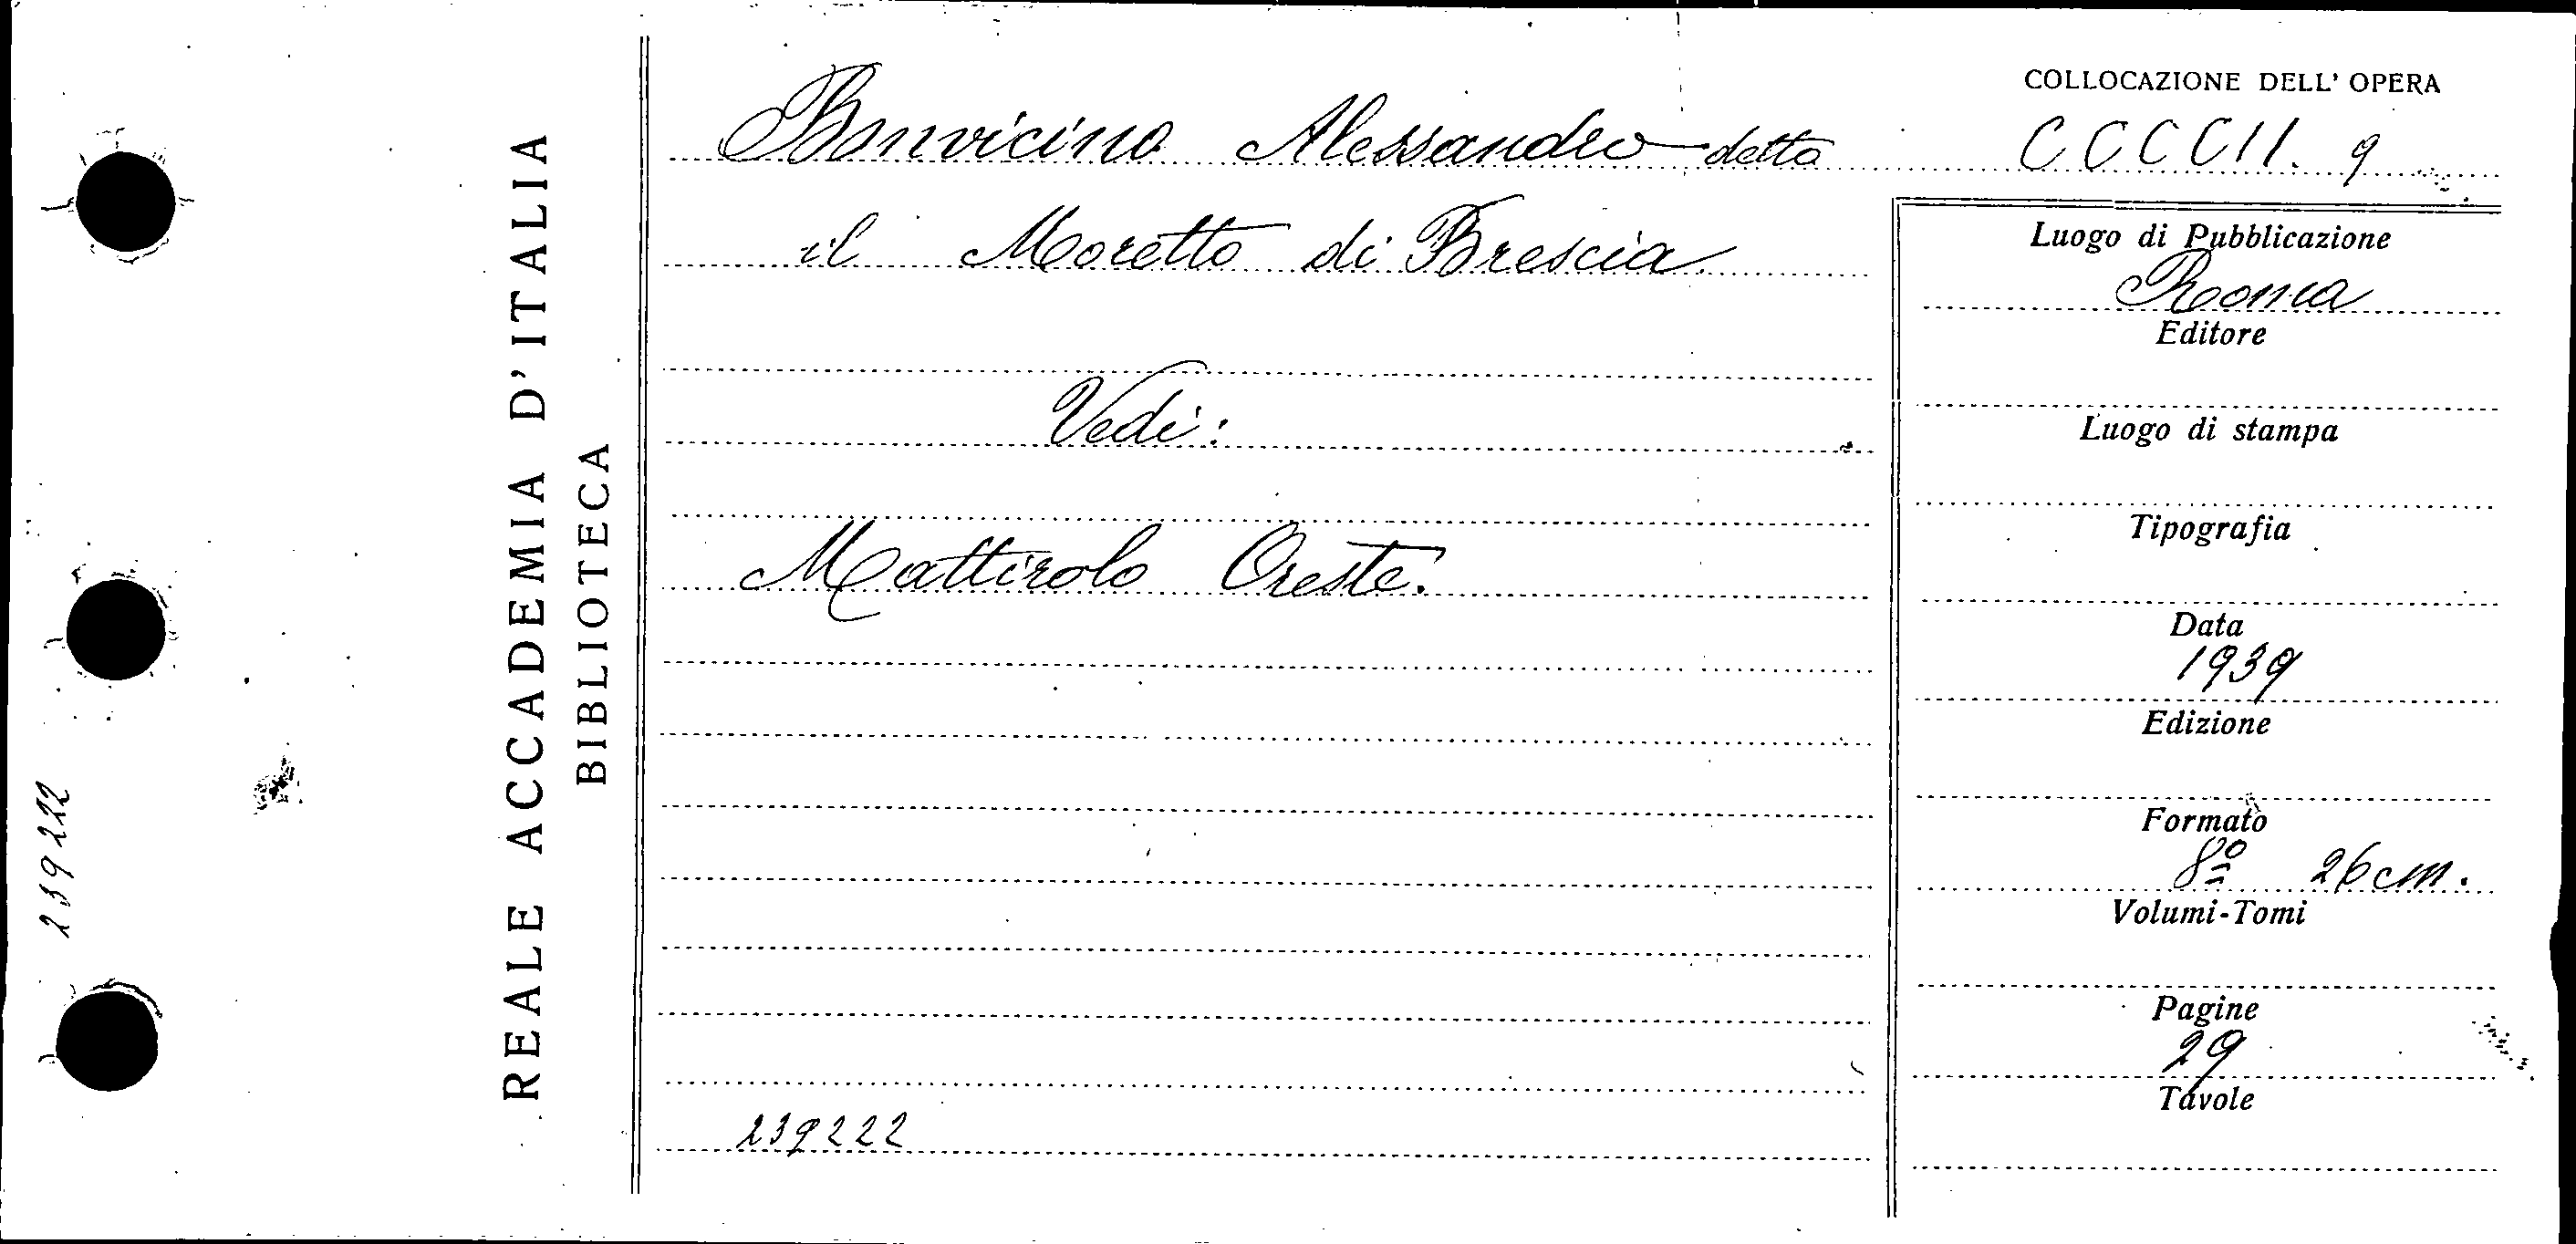 REALE ACCADEMIA D'ITALIA
BIBLIOTECA
239222
Bonvicino Alessandro detto
il Moretto di Brescia
Vedi:
Mattirolo Oreste.
239222
COLLOCAZIONE DELL' OPERA
CCCCII. 9
Luogo di Pubblicazione
Roma
Editore
Luogo di stampa
Tipografia
Data
1939
Edizione
Formato
8º 26 cm.
Volumi-Tomi
Pagine
29
Tavole